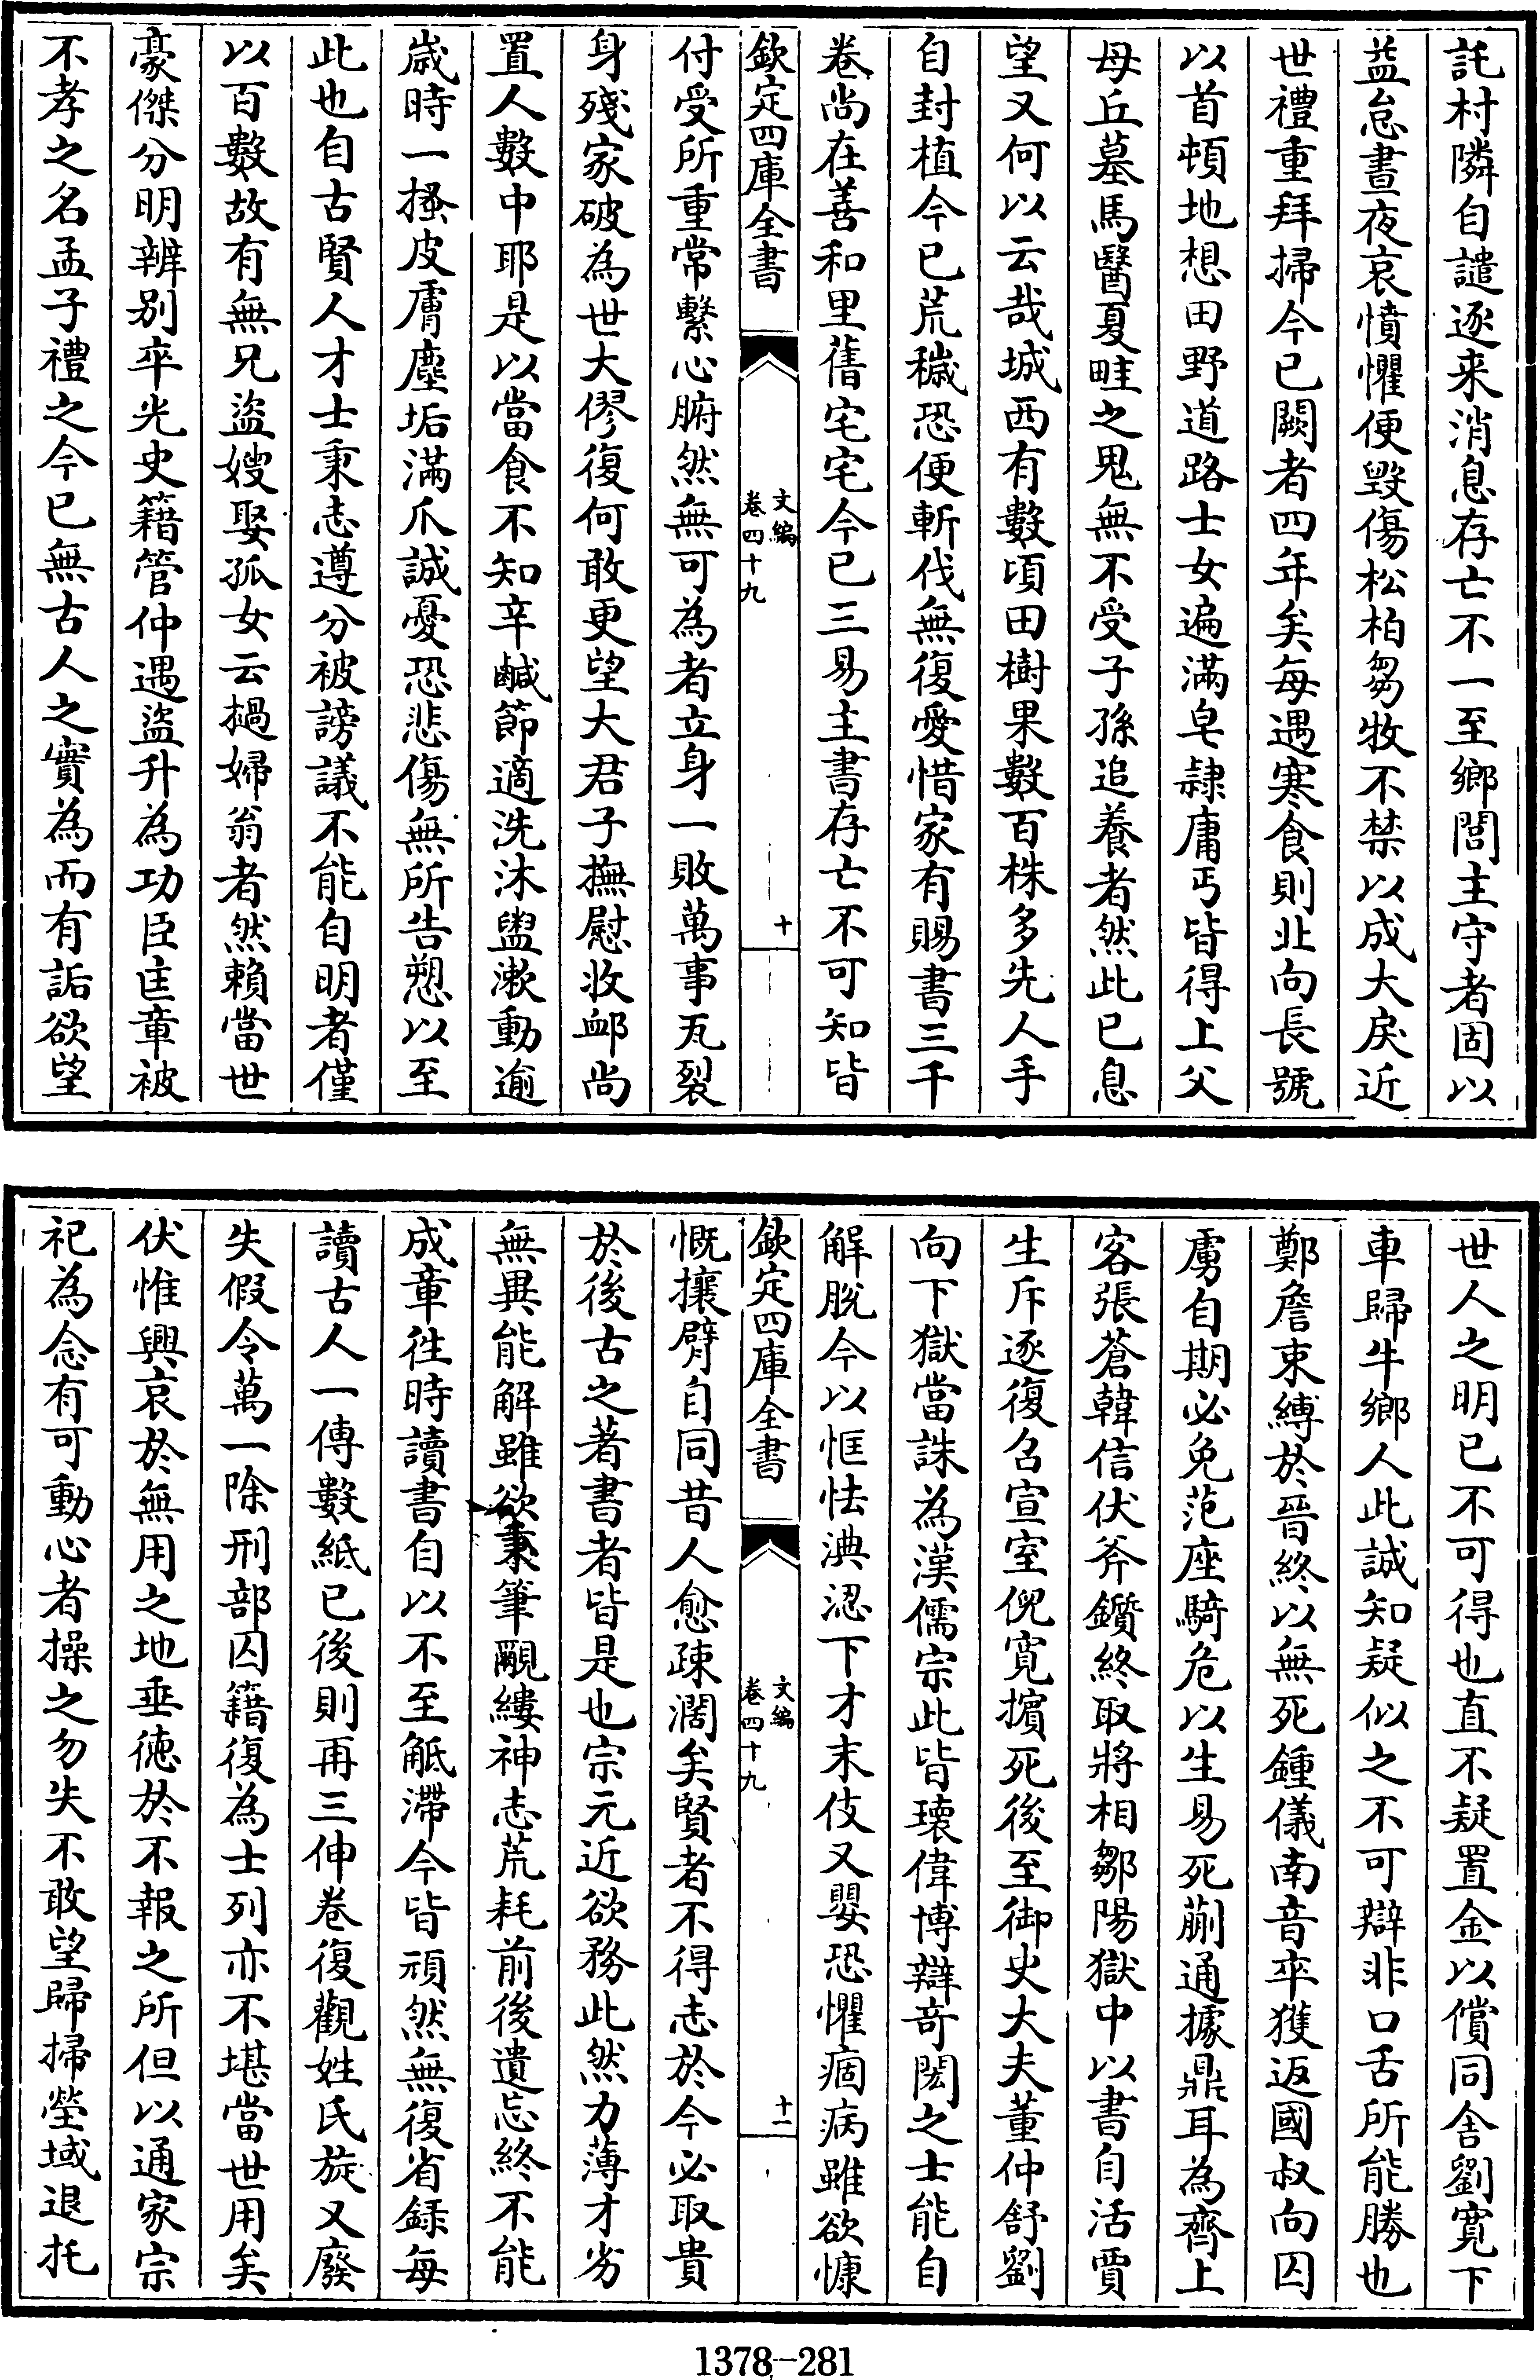 託村隣自譴逐来消息存亡不一至鄉閭主守者固以
益怠晝夜哀憤懼便毀傷松柏芻牧不禁以成大戾近
世禮重拜掃今已闕者四年矣每遇寒食則北向長號
以首頓地想田野道路士女遍滿皂隸庸丐皆得上父
母丘墓馬醫夏畦之鬼無不受子孫追養者然此已息
望又何以云哉城西有數頃田樹果數百株多先人手
自封植今已荒穢恐便斬伐無復愛惜家有賜書三千
卷尚在善和里舊宅宅今已三易主書存亡不可知皆
欽定四庫全書
文編
卷四十九
十
付受所重常繫心腑然無可為者立身一敗萬事瓦裂
身殘家破為世大僇復何敢更望大君子撫慰收卹尚
置人數中耶是以當食不知辛鹹節適洗沐盥漱動逾
歲時一搔皮膚塵垢滿爪誠憂恐悲傷無所告愬以至
此也自古賢人才士秉志遵分被謗議不能自明者僅
以百數故有無兄盜嫂娶孤女云撾婦翁者然賴當世
豪傑分明辨別卒光史籍管仲遇盜升為功臣匡章被
不孝之名孟子禮之今已無古人之實為而有詬欲望
世人之明已不可得也直不疑置金以償同舍劉寬下
車歸牛鄉人此誠知疑似之不可辯非口舌所能勝也
鄭詹束縛於晉終以無死鍾儀南音卒獲返國叔向囚
虜自期必免范座騎危以生易死蒯通據鼎耳為齊上
客張蒼韓信伏斧鑕終取將相鄒陽獄中以書自活賈
生斥逐復召宣室倪寬擯死後至御史大夫董仲舒劉
向下獄當誅為漢儒宗此皆瓌偉博辯奇閎之士能自
解脫今以恇怯淟涊下才末伎又嬰恐懼痼病雖欲慷
欽定四庫全書
文編
卷四十九
十一
慨攘臂自同昔人愈疎濶矣賢者不得志於今必取貴
於後古之著書者皆是也宗元近欲務此然力薄才劣
無異能解雖欲秉筆覼縷神志荒耗前後遺忘終不能
成章徃時讀書自以不至觝滯今皆頑然無復省録每
讀古人一傳數紙已後則再三伸卷復觀姓氏旋又廢
失假令萬一除刑部囚籍復為士列亦不堪當世用矣
伏惟興哀於無用之地垂德於不報之所但以通家宗
祀為念有可動心者操之勿失不敢望歸掃塋域退托
1378-281